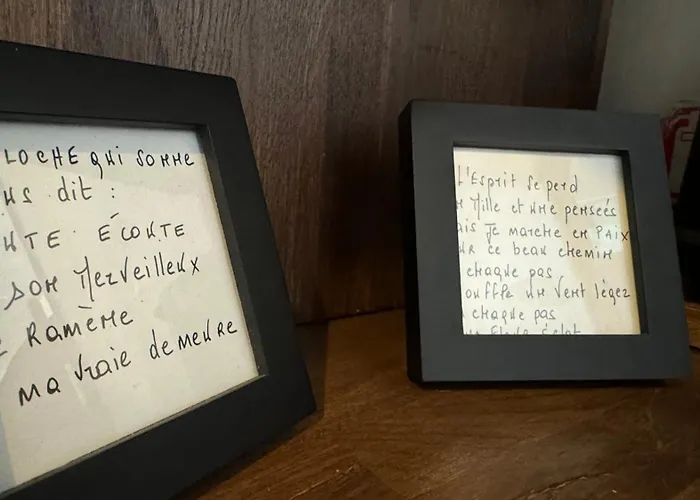 LOCHE QUI SONNE
US dit :
UTE ÉCOUTE
SON Merveilleux
RAMÈNE
MA VRAIE demeURE
L'Esprit se perd
Mille et UNE pensées
ais Je marche en PAIX
UR ce beau chemin
chaque pas
ouffle UN Vent léger
chaque pas